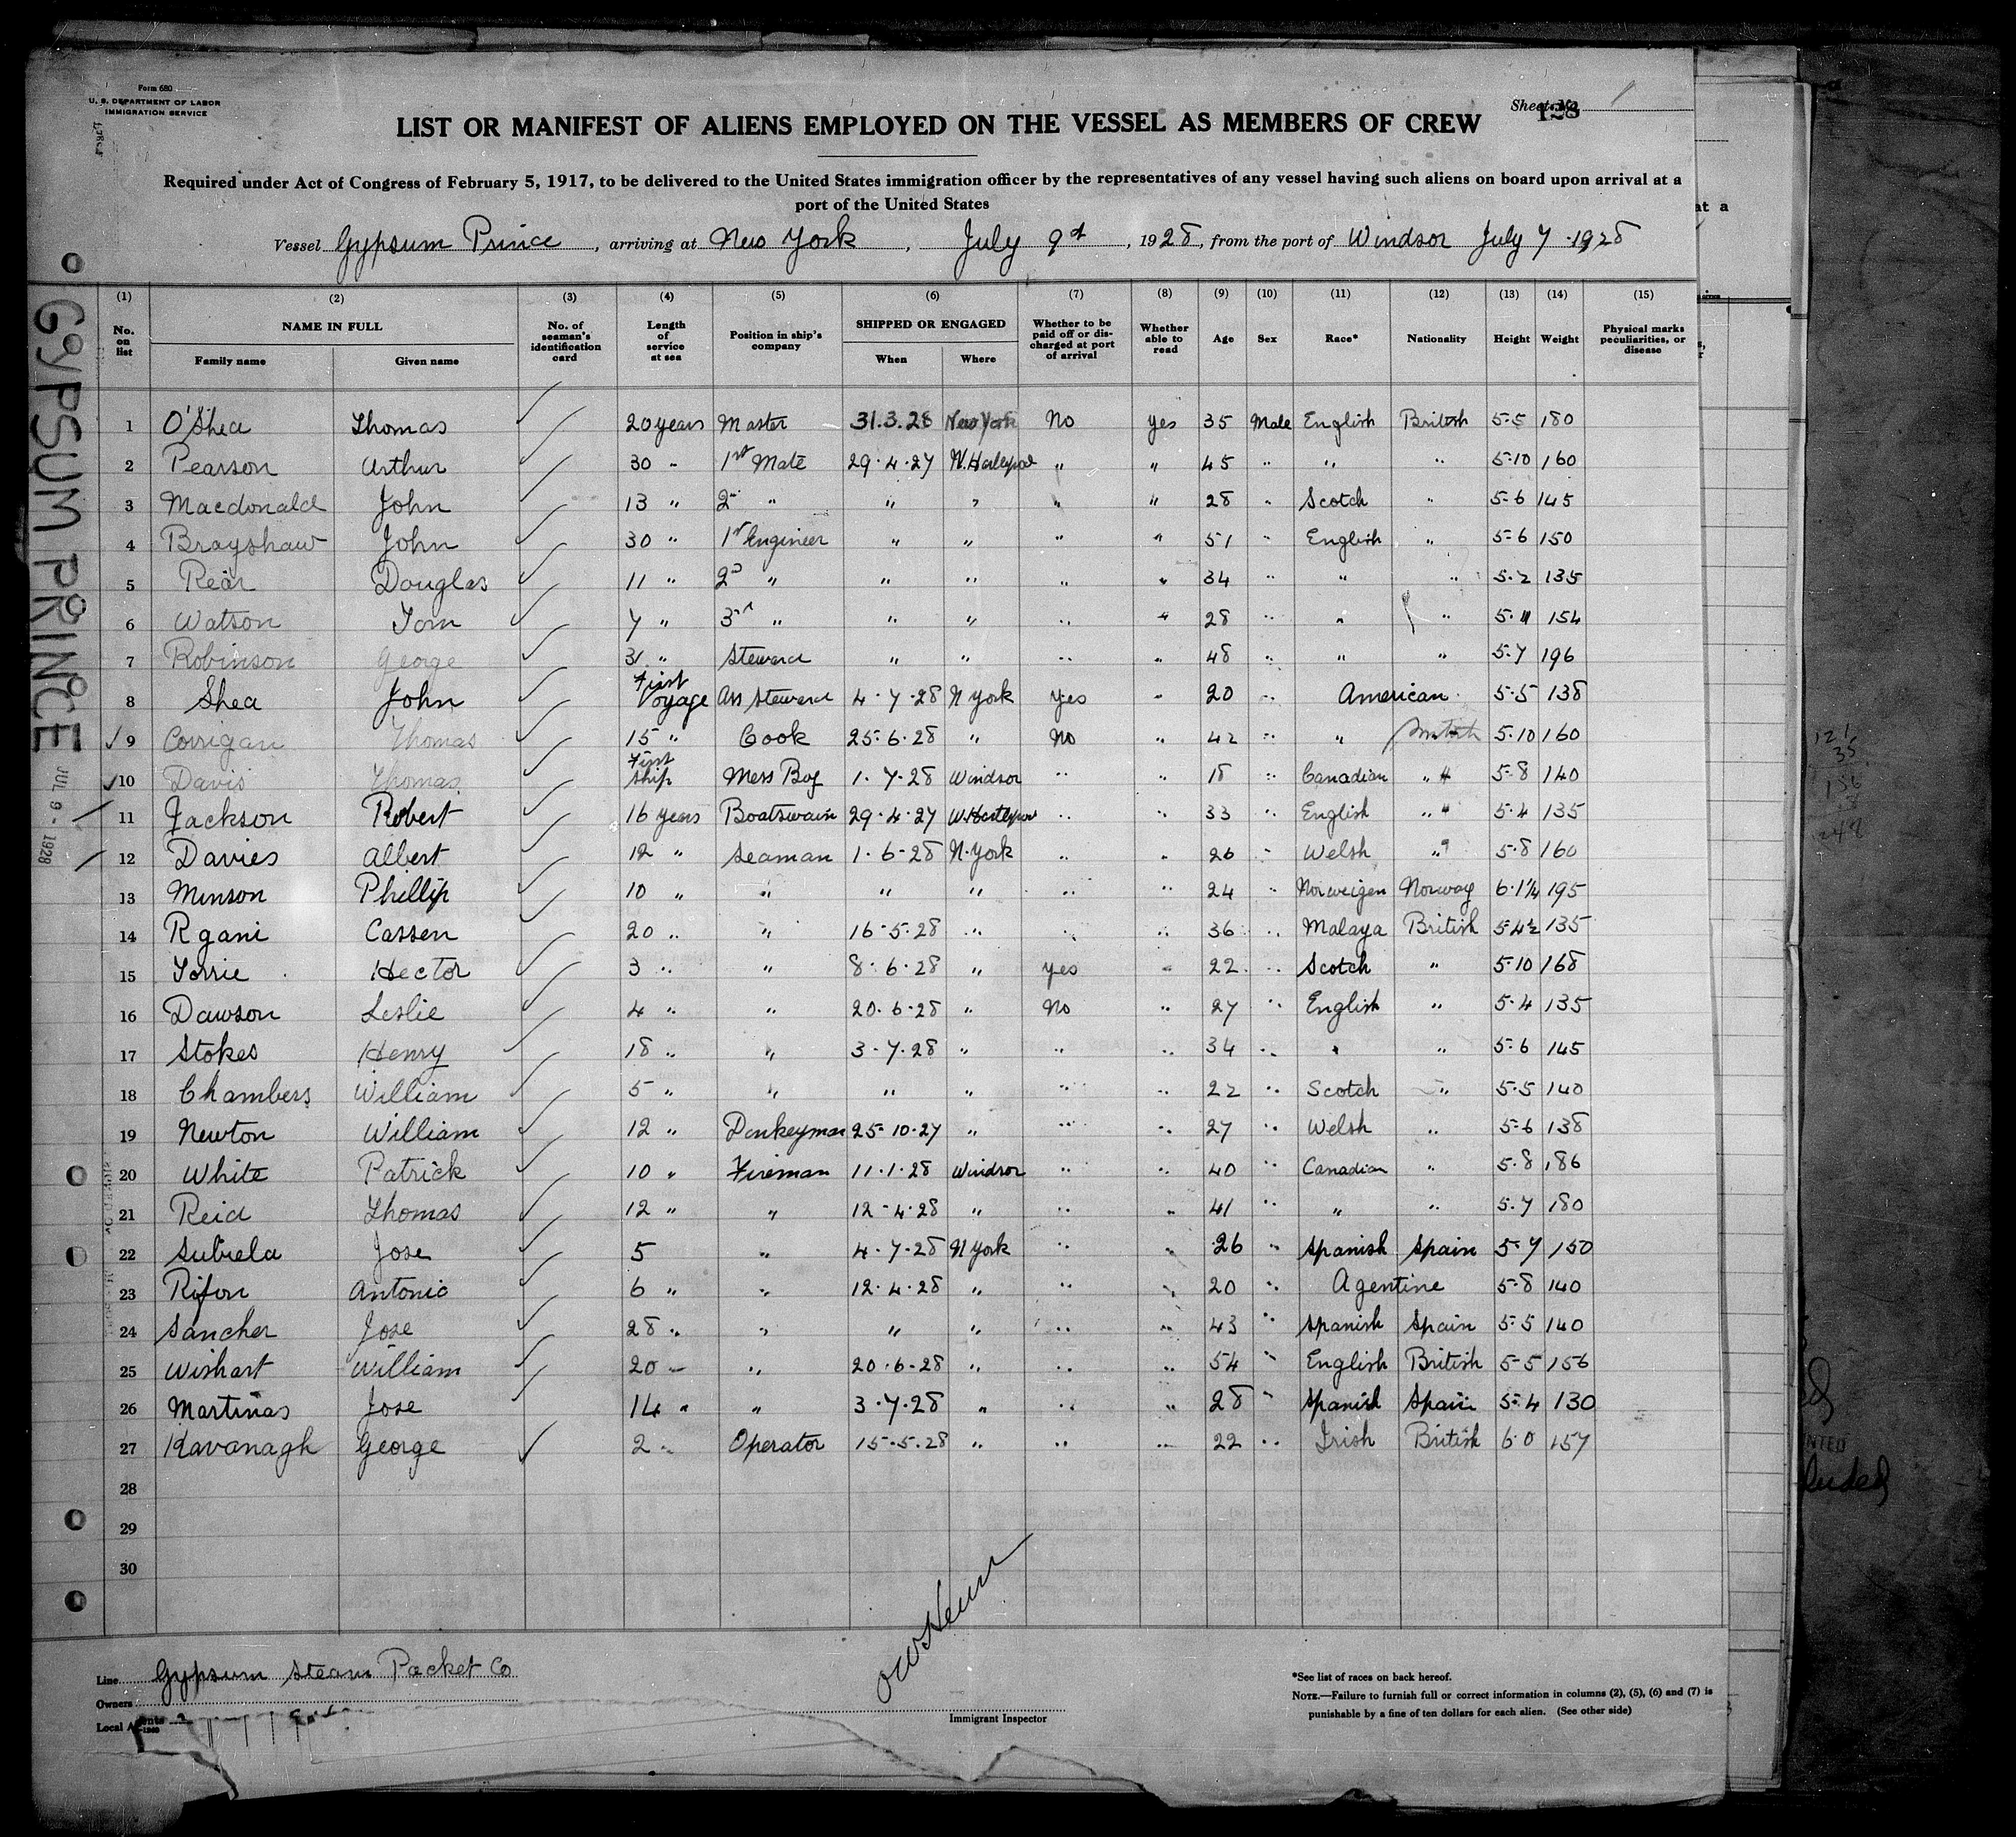 Form 680
U. S. DEPARTMENT OF LABOR
IMMIGRATION SERVICE
Sheet No. 1
128
LIST OR MANIFEST OF ALIENS EMPLOYED ON THE VESSEL AS MEMBERS OF CREW
Required under Act of Congress of February 5, 1917, to be delivered to the United States immigration officer by the representatives of any vessel having such aliens on board upon arrival at a
port of the United States
Vessel Gypsum Prince, arriving at New York, July 9th, 1928, from the port of Windsor July 7 1928
(1) (2) (3) (4) (5) (6) (7) (8) (9) (10) (11) (12) (13) (14) (15)
No. on list NAME IN FULL Family name Given name No. of seaman's identification card Length of service at sea Position in ship's company SHIPPED OR ENGAGED When Where Whether to be paid off or discharged at port of arrival Whether able to read Age Sex Race* Nationality Height Weight Physical marks peculiarities, or disease
1 O'Shea Thomas 20 years Master 31.3.28 New York No yes 35 Male English British 5-5 180
2 Pearson Arthur 30 " 1st Mate 29.4.27 W. Hartlepool " " 45 " " " 5-10 160
3 Macdonald John 13 " 2nd " " " " " 28 " Scotch " 5-6 145
4 Brayshaw John 30 " 1st Engineer " " " " 51 " English " 5-6 150
5 Rear Douglas 11 " 2nd " " " " " 34 " " " 5-2 135
6 Watson Tom 7 " 3rd " " " " " 28 " " " 5-11 154
7 Robinson George 31 " Steward " " " " 48 " " " 5-7 196
8 Shea John First Voyage Ass Steward 4-7-28 N York yes " 20 " American 5-5 138
9 Corrigan Thomas 15 " Cook 25-6-28 " No " 42 " " British 5-10 160
10 Davis Thomas First ship Mess Boy 1-7-28 Windsor " " 18 " Canadian " 5-8 140
11 Jackson Robert 16 years Boatswain 29-4-27 W. Hartlepool " " 33 " English " 5-4 135
12 Davies Albert 12 " Seaman 1-6-28 N. York " " 26 " Welsh " 5-8 160
13 Minson Phillip 10 " " " " " " 24 " Norweigen Norway 6-1¼ 195
14 Rgani Cassen 20 " " 16-5-28 " " " 36 " Malaya British 5-4½ 135
15 Torrie Hector 3 " " 8-6-28 " yes " 22 " Scotch " 5-10 168
16 Dawson Leslie 4 " " 20-6-28 " No " 27 " English " 5-4 135
17 Stokes Henry 18 " " 3-7-28 " " " 34 " " " 5-6 145
18 Chambers William 5 " " " " " " 22 " Scotch " 5-5 140
19 Newton William 12 " Donkeyman 25-10-27 " " " 27 " Welsh " 5-6 138
20 White Patrick 10 " Fireman 11-1-28 Windsor " " 40 " Canadian " 5-8 186
21 Reid Thomas 12 " " 12-4-28 " " " 41 " " " 5-7 180
22 Subiela Jose 5 " 4-7-28 N York " " 26 " Spanish Spain 5-7 150
23 Rifon Antonio 6 " " 12-4-28 " " " 20 " Agentine 5-8 140
24 Sancher Jose 28 " " " " " " 43 " Spanish Spain 5-5 140
25 Wishart William 20 " " 20-6-28 " " " 54 " English British 5-5 156
26 Martinas Jose 14 " " 3-7-28 " " " 28 " Spanish Spain 5-4 130
27 Kavanagh George 2 " Operator 15-5-28 " " " 22 " Irish British 6-0 157
28
29
30
GYPSUM PRINCE
JUL 9 - 1928
Line Gypsum Steam Packet Co
Owners
Local Agents
Immigrant Inspector
*See list of races on back hereof.
NOTE.—Failure to furnish full or correct information in columns (2), (5), (6) and (7) is
punishable by a fine of ten dollars for each alien. (See other side)